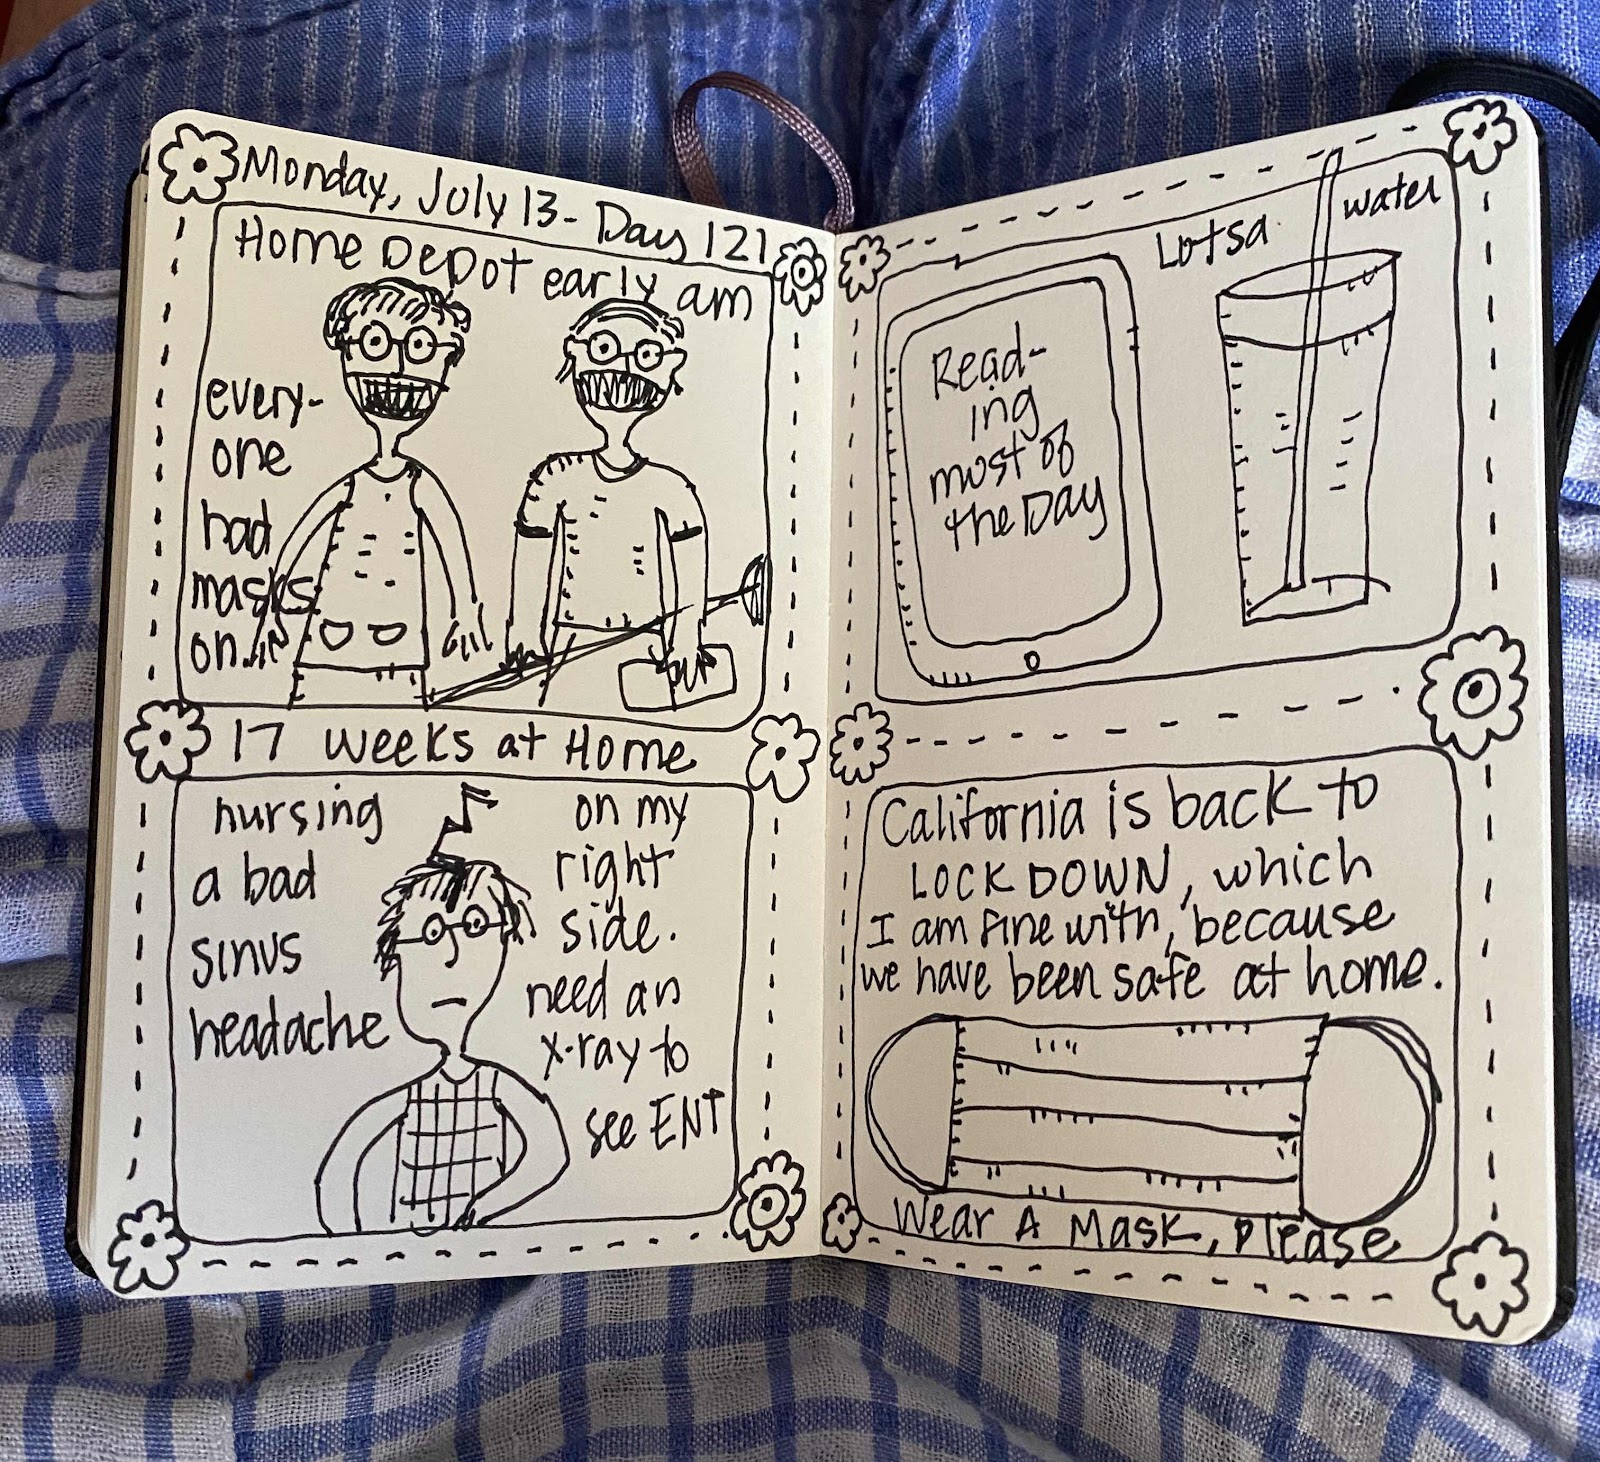 Monday, July 13 - Day 121
Home Depot early am
every-
one
had
masks
on...
17 weeks at Home
nursing
a bad
sinus
headache
on my
right
side.
need an
x-ray to
see ENT
Read-
ing
most of
the Day
Lotsa water
California is back to
LOCK DOWN, which
I am fine with, because
we have been safe at home.
Wear A Mask, please